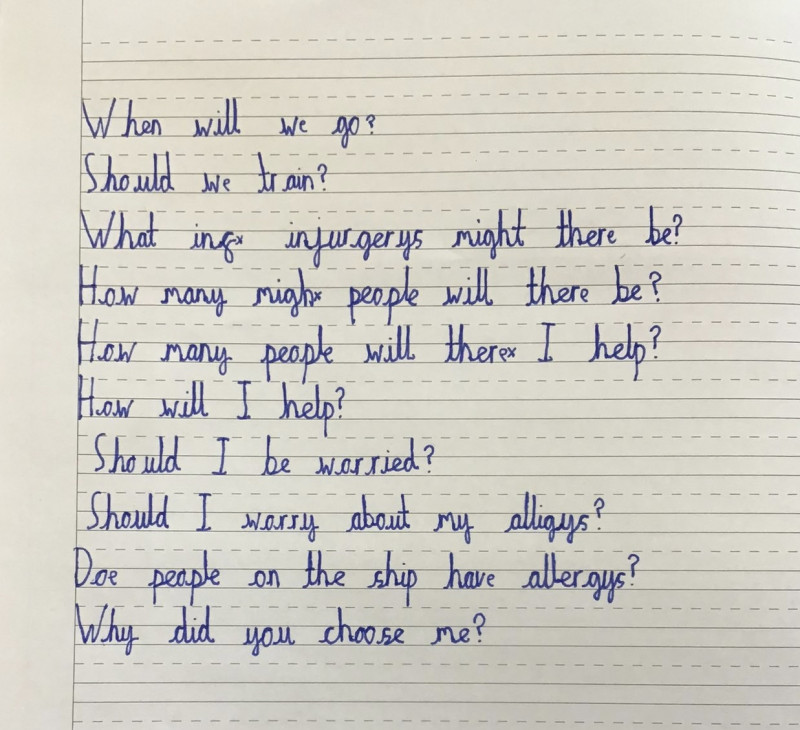 When will we go?
Should we train?
What ing× injurgerys might there be?
How many migh× people will there be?
How many people will there× I help?
How will I help?
Should I be worried?
Should I worry about my alligys?
Doe people on the ship have allergys?
Why did you choose me?